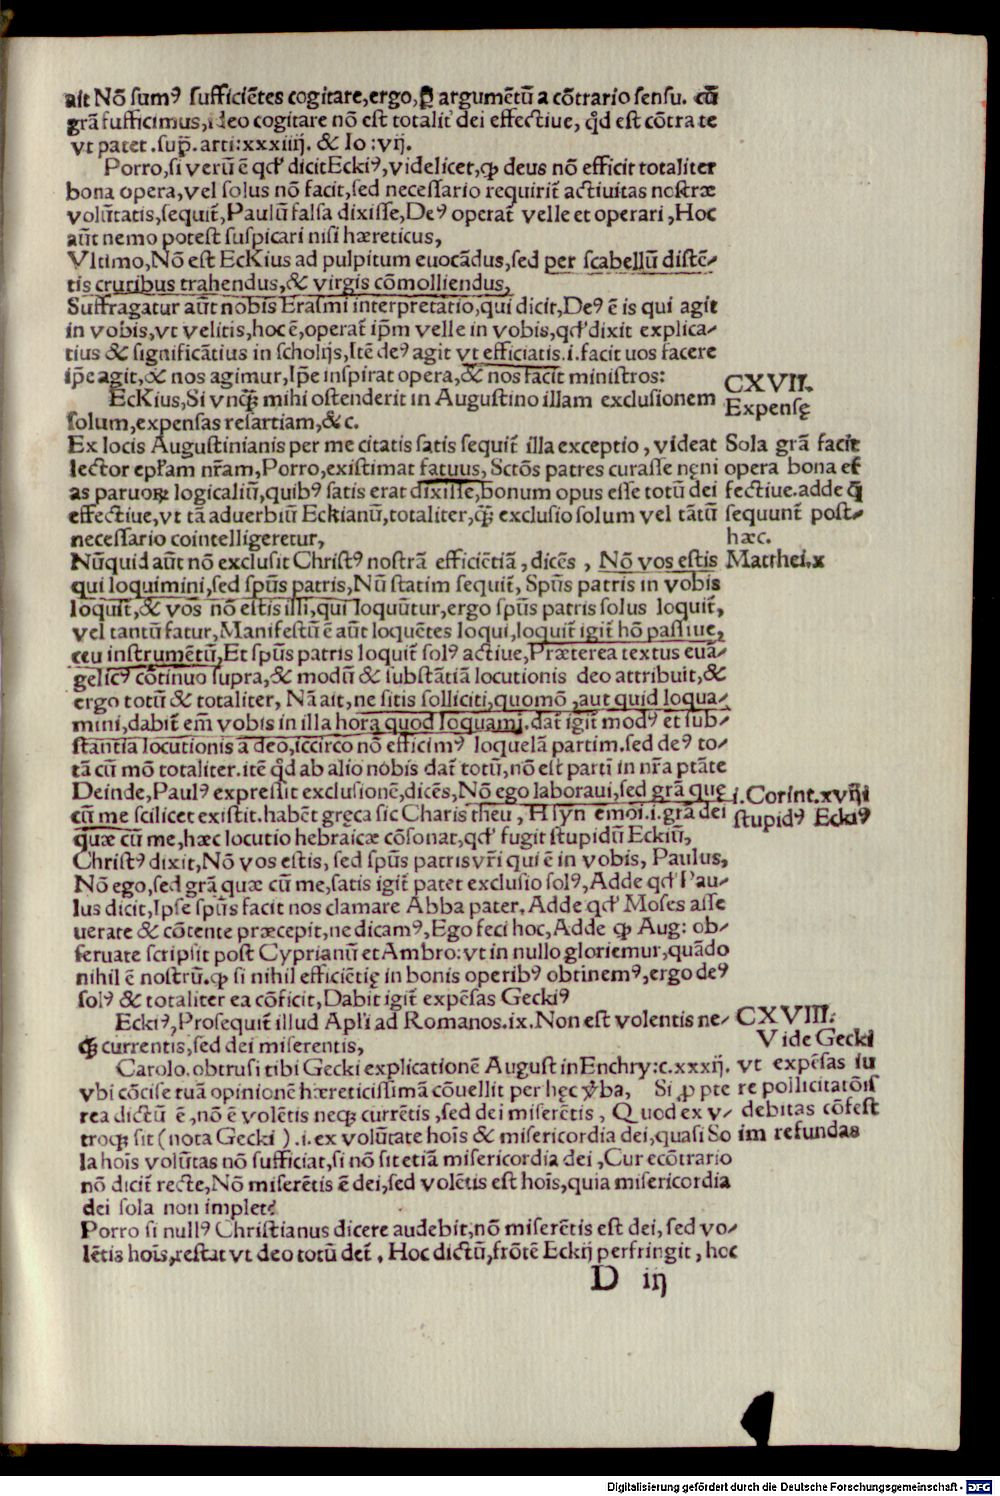 ait Nō sumꝰ sufficiētes cogitare,ergo,ꝑ argumētū a cōtrario sensu. cū
grā sufficimus,ideo cogitare nō est totalit̄ dei effectiue, qd̄ est cōtra te
vt patet .sup̄. arti:xxxiiij. & Io :vij.
Porro,si verū ē qd' dicit Eckiꝰ,videlicet,ꝙ deus nō efficit totaliter
bona opera,vel solus nō facit,sed necessario requirit̄ actiuitas nostræ
volūtatis,sequit̄,Paulū falsa dixisse,Deꝰ operat̄ velle et operari,Hoc
aūt nemo potest suspicari nisi hæreticus,
Vltimo,Nō est EcKius ad pulpitum euocādus,sed per scabellū distē-
tis cruribus trahendus,& virgis cōmolliendus,
Suffragatur aūt nobis Erasmi interpretatio,qui dicit,Deꝰ ē is qui agit
in vobis,vt velitis,hoc ē,operat̄ ip̄m velle in vobis,qd' dixit explica-
tius & significātius in scholijs,Itē deꝰ agit vt efficiatis.i.facit uos facere
ip̄e agit,& nos agimur,Ip̄e inspirat opera,& nos facit ministros:
EcKius,Si vnqꝫ mihi ostenderit in Augustino illam exclusionem
solum,expensas resartiam,&c.
CXVII.
Expensę
Ex locis Augustinianis per me citatis satis sequit̄ illa exceptio, videat
lector epl'am nr̄am,Porro,existimat fatuus, Sctōs patres curasse nęni
as paruoꝝ logicaliū,quibꝰ satis erat dixisse,bonum opus esse totū dei
effectiue,vt tā aduerbiū Eckianū,totaliter,qꝫ exclusio solum vel tātū
necessario cointelligeretur,
Sola grā facit
opera bona ef
fectiue.adde q̄
sequunt̄ post-
hæc.
Matthei.x
Nūquid aūt nō exclusit Christꝰ nostrā efficiētiā, dicēs , Nō vos estis
qui loquimini,sed spūs patris,Nū statim sequit̄, Spūs patris in vobis
loquit̄,& vos nō estis illi,qui loquūtur,ergo spūs patris solus loquit̄,
vel tantū fatur,Manifestū ē aūt loquētes loqui,loquit̄ igit̄ hō passiue,
ceu instrumētū,Et spūs patris loquit̄ solꝰ actiue,Præterea textus euā-
gelicꝰ cōtinuo supra,& modū & substātiā locutionis deo attribuit,&
ergo totū & totaliter, Nā ait,ne sitis solliciti,quomō,aut quid loqua-
mini,dabit̄ em̄ vobis in illa hora quod loquamj.dat̄ igit̄ modꝰ et sub-
stantia locutionis a deo,iccirco nō efficimꝰ loquelā partim.sed deꝰ to-
tā cū mō totaliter.itē qd̄ ab alio nobis dat̄ totū,nō est partī in nr̄a ptāte
Deinde,Paulꝰ expressit exclusionē,dicēs,Nō ego laboraui,sed grā quę
cū me scilicet existit.habēt gręca sic Charis theu, H syn emoi.i.grā dei
quæ cū me,hæc locutio hebraicæ cōsonat,qd' fugit stupidū Eckiū,
i.Corint.xviij
stupidꝰ Eckiꝰ
Christꝰ dixit,Nō vos estis, sed spūs patris vr̄i qui ē in vobis, Paulus,
Nō ego,sed grā quæ cū me,satis igit̄ patet exclusio solꝰ,Adde qd' Pau-
lus dicit,Ipse spūs facit nos clamare Abba pater. Adde qd' Moses asse
uerate & cōtente præcepit,ne dicamꝰ,Ego feci hoc,Adde ꝙ Aug: ob-
seruate scripsit post Cyprianū et Ambro:vt in nullo gloriemur,quādo
nihil ē nostrū.ꝙ si nihil efficiētię in bonis operibꝰ obtinemꝰ,ergo deꝰ
solꝰ & totaliter ea cōficit,Dabit igit̄ expēsas Geckiꝰ
Eckiꝰ,Prosequit̄ illud Apl'i ad Romanos.ix.Non est volentis ne-
qꝫ currentis,sed dei miserentis,
CXVIII.
Vide Gecki
vt expēsas iu
re pollicitatōis
debitas cōfest
im refundas
Carolo.obtrusi tibi Gecki explicationē August in Enchry:c.xxxij.
vbi cōcise tuā opinionē hæreticissimā cōuellit per hęc v̄ba, Si ꝓpte
rea dictū ē,nō ē volētis neqꝫ currētis,sed dei miserētis, Quod ex v-
troqꝫ sit (nota Gecki ).i.ex volūtate hoīs & misericordia dei,quasi So
la hoīs volūtas nō sufficiat,si nō sit etiā misericordia dei ,Cur ecōtrario
nō dicit̄ recte,Nō miserētis ē dei,sed volētis est hoīs,quia misericordia
dei sola non implet?
Porro si nullꝰ Christianus dicere audebit,nō miserētis est dei, sed vo-
lētis hoīs,restat vt deo totū det̄ , Hoc dictū,frōtē Eckij perfringit, hoc
D iij
Digitalisierung gefördert durch die Deutsche Forschungsgemeinschaft - DFG